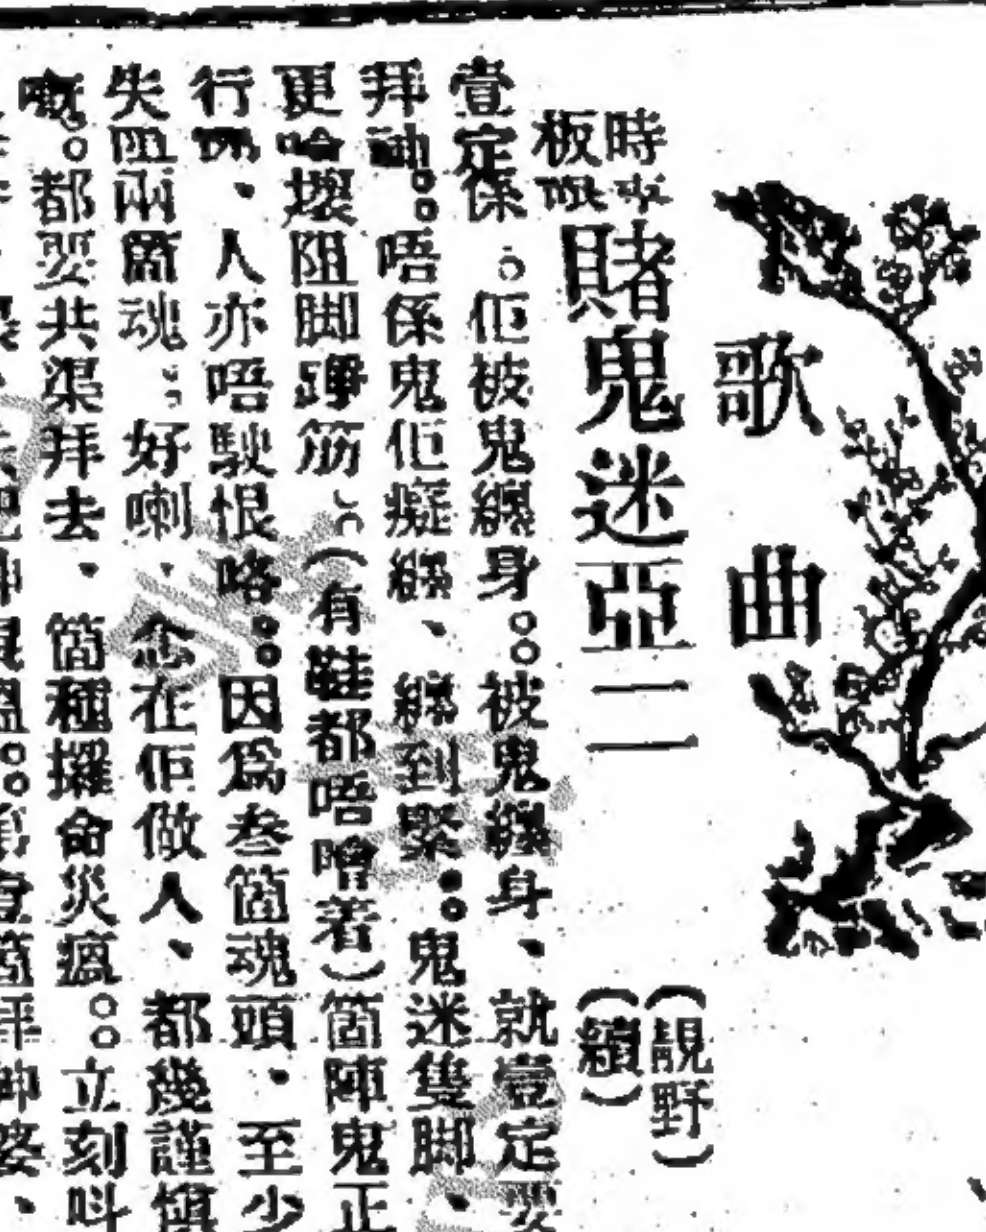 歌曲
時事
板眼
賭鬼迷亞二
(靚野)
(續)
壹定係。佢被鬼纏身。。被鬼纏身、就壹定要
拜神。。唔係鬼佢癡纏、纏到緊。。鬼迷隻脚、
更喻壞阻脚踭筋。(有鞋都唔噲着)箇陣鬼正
行、人亦唔駛恨咯。。因爲叁箇魂頭、至少
失阻兩箇魂。好喇、念在佢做人、都幾謹慎
嘅。都要共渠拜去、箇種攞命災瘟。。立刻叫